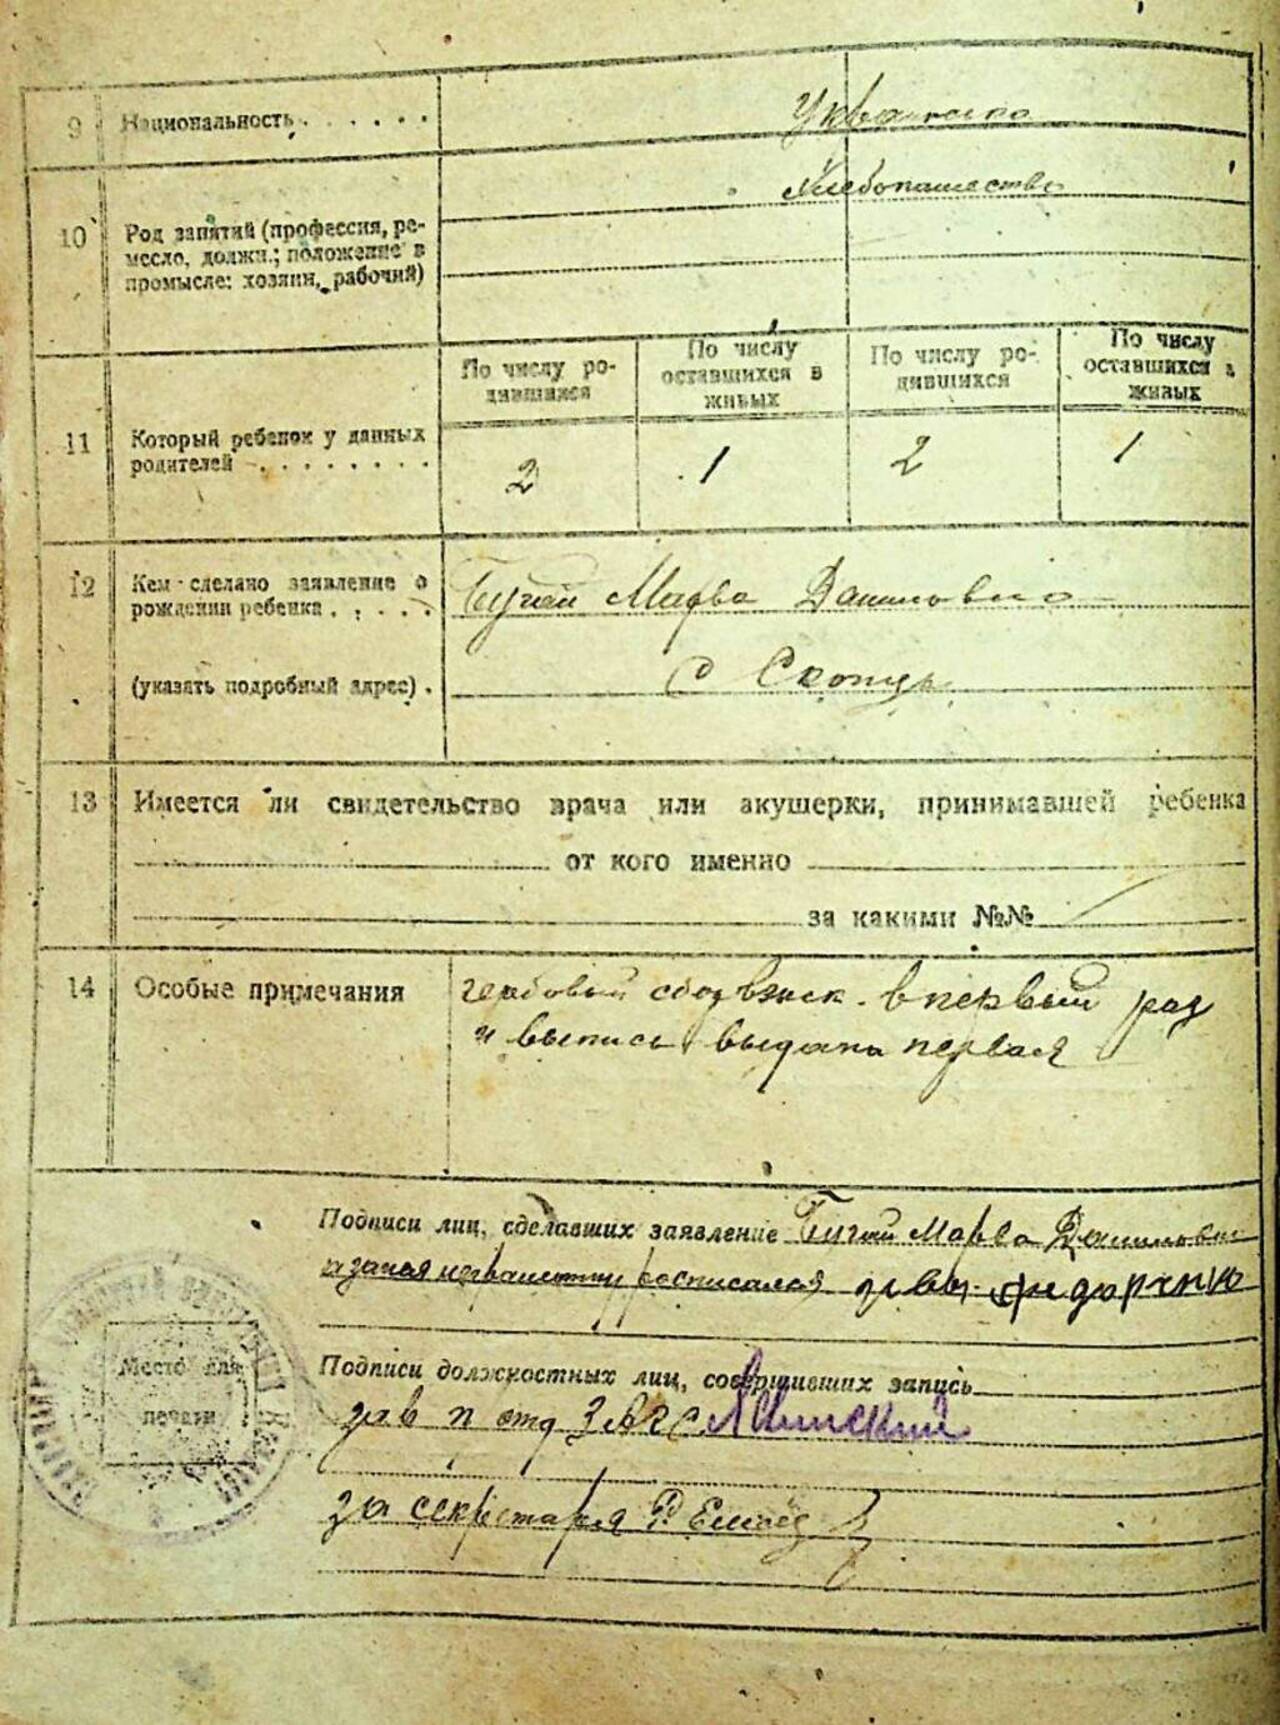 9 Национальность . . . . . .
Хлебопашество
10 Род занятий (профессия, ре-
месло, должн.; положение в
промысле: хозяин, рабочий)
По числу ро-
дившихся
По числу
оставшихся в
живых
По числу ро-
дившихся
По числу
оставшихся в
живых
11 Который ребенок у данных
родителей . . . . . . . .
2 1 2 1
12 Кем сделано заявление о
рождении ребенка . . . . .
Бугай Марва Даниловна
(указать подробный адрес) .
с Скопцы
13 Имеется ли свидетельство врача или акушерки, принимавшей ребенка
от кого именно
за какими №№
14 Особые примечания
гербовый сбор взыск. в первый раз
и выпись выдана первая
Подписи лиц, сделавших заявление Бугай Марва Даниловна
а за нея неграмотную росписался Федорченко
Место для
печати
Подписи должностных лиц, совершивших запись
зав п отд ЗАГС
за секретаря